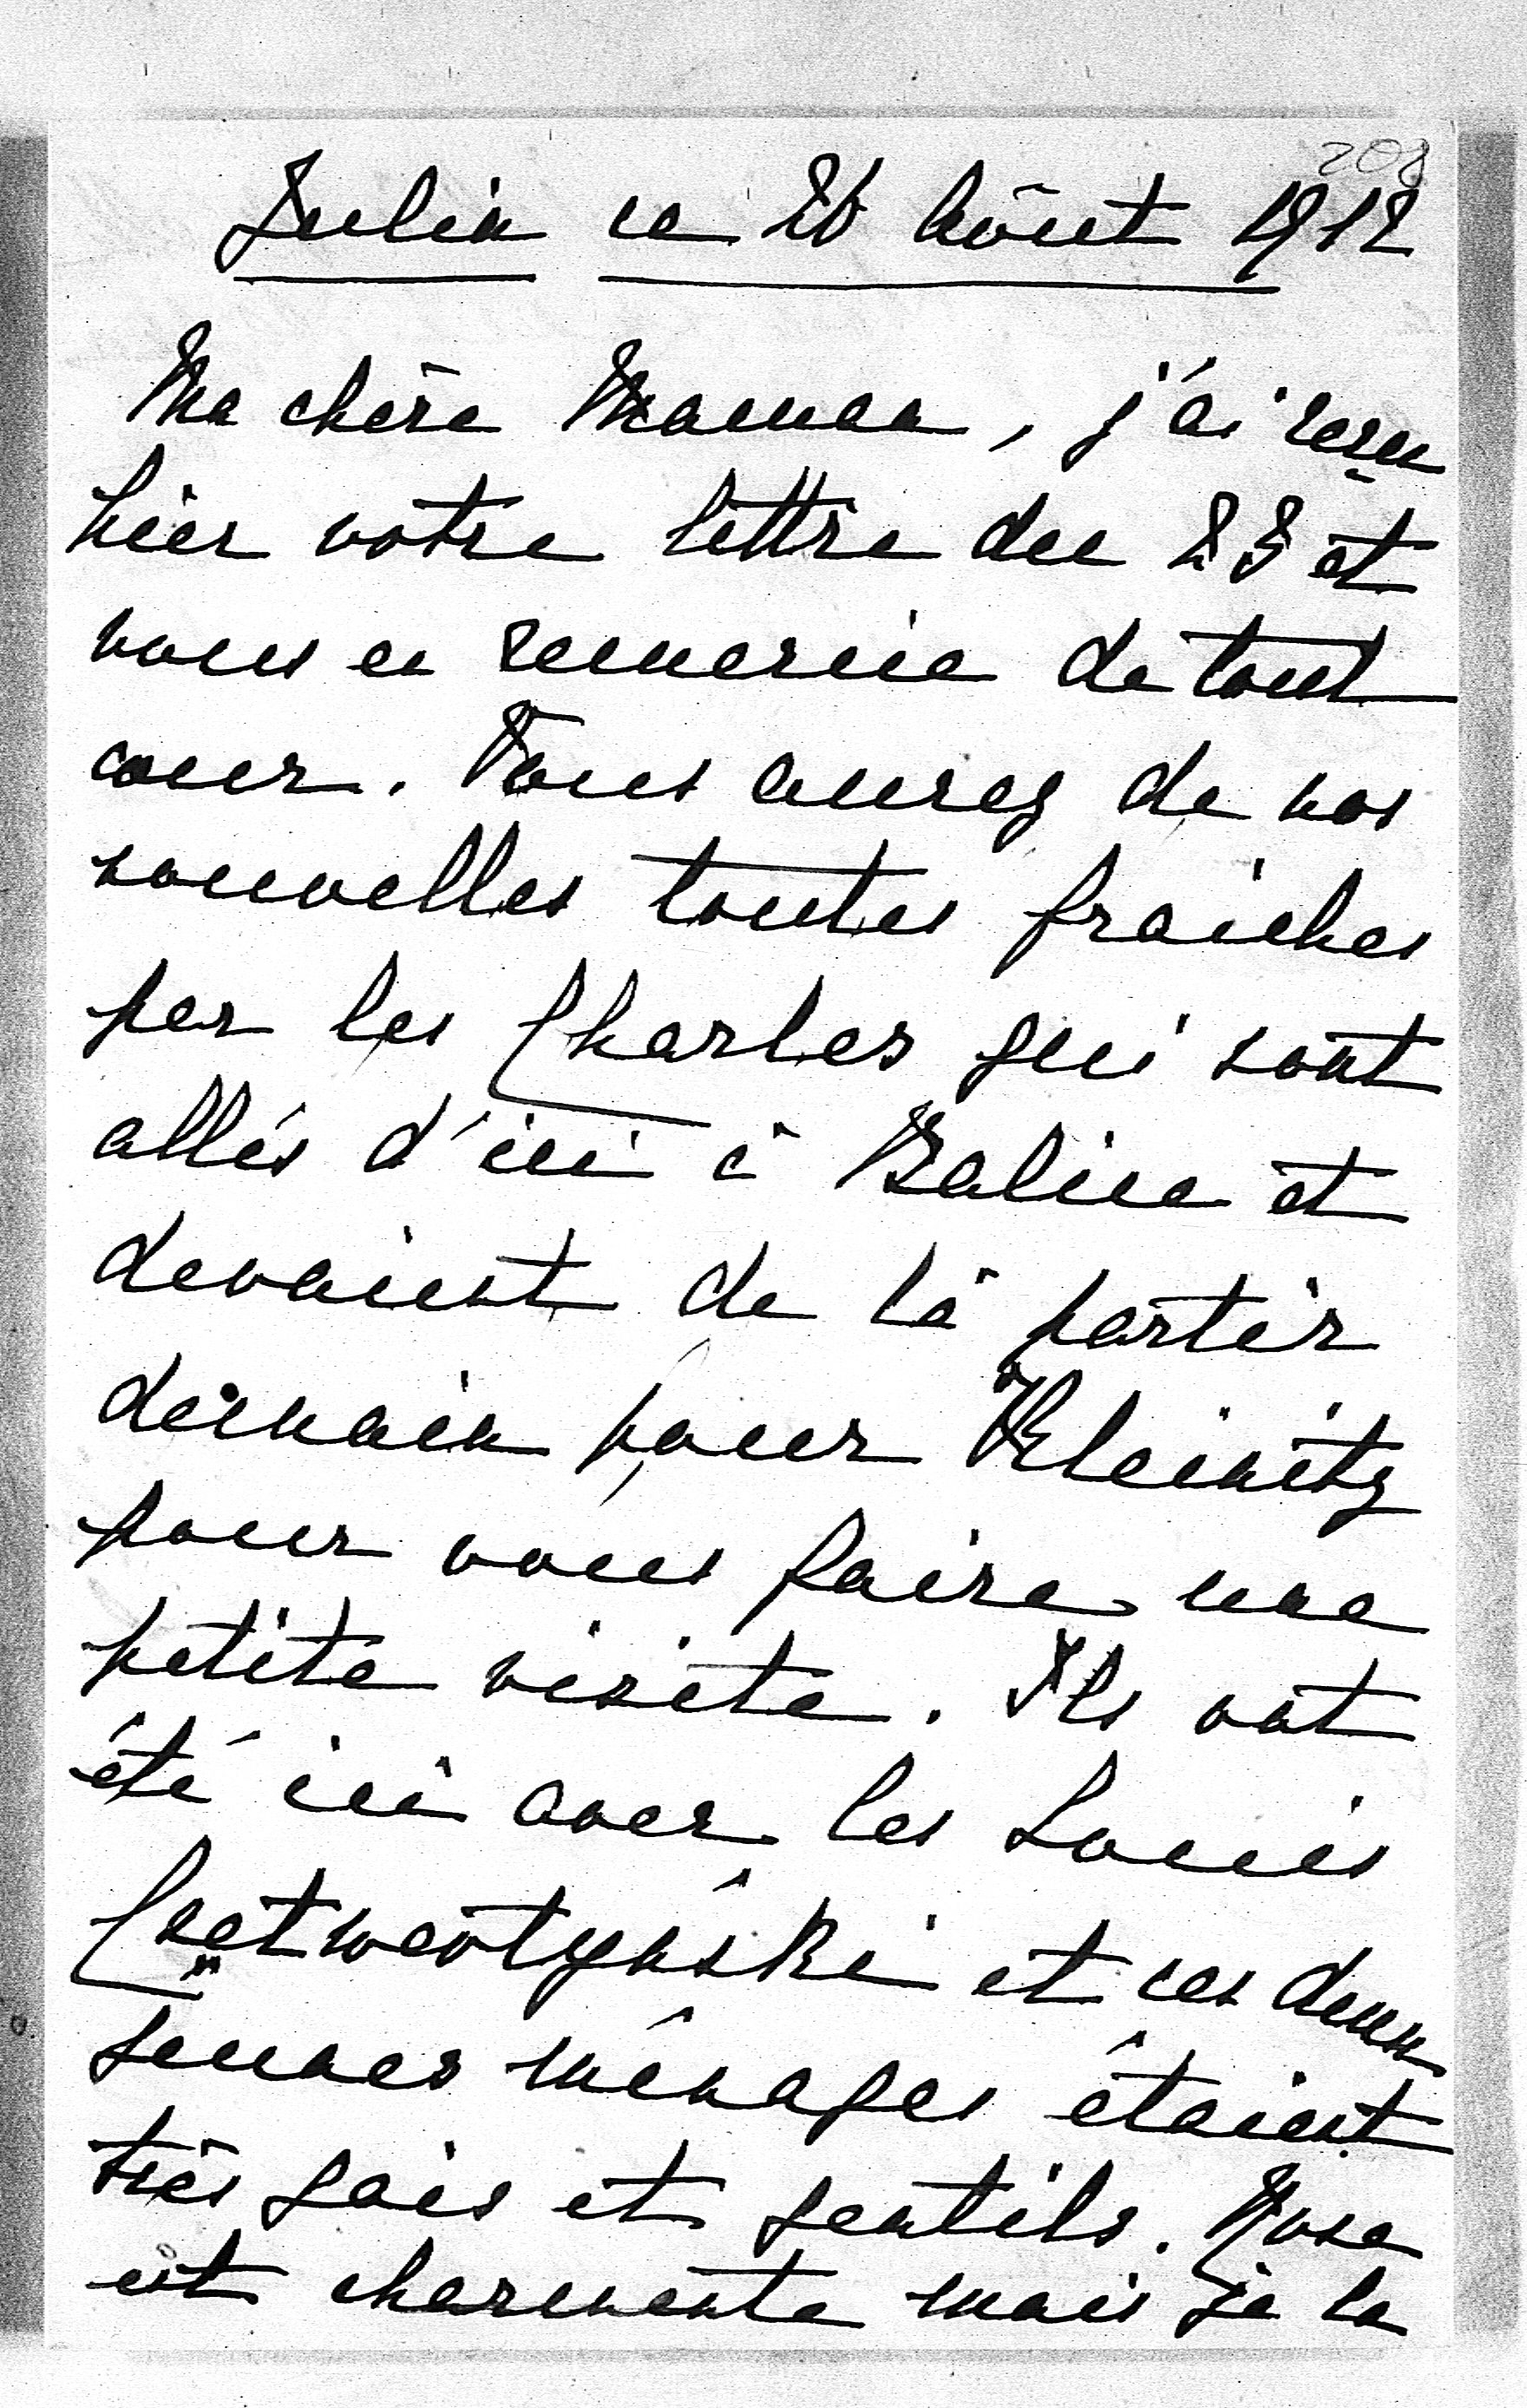 208
Julin ce 26 Août 1912
Ma chère Maman, j'ai reçu
hier votre lettre du 23 et
vous en remercie de tout
cœur. Vous aurez de nos
nouvelles toutes fraiches
par les Charles qui sont
allés d'ici à Balice et
devaient de là partir
demain pour Kleinitz
pour vous faire une
petite visite. Ils ont
été ici avec les Louis
Czetwertyński et ces deux
jeunes ménages étaient
très gais et gentils. Rose
est charmante mais je la